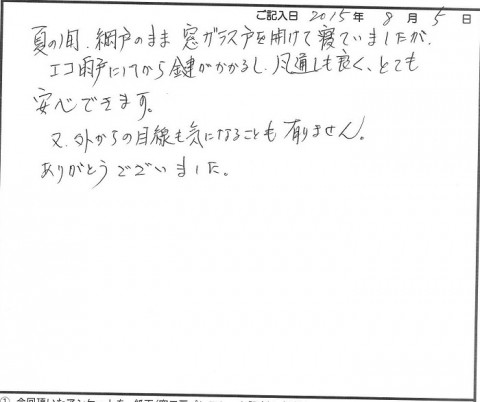 ご記入日 2015年 8月 5日
夏の間、網戸のまま窓ガラス戸を開けて寝ていましたが、
エコ雨戸にしてから鍵がかかるし、風通しも良く、とても
安心できます。
又、外からの目線も気になることも有りません。
ありがとうございました。